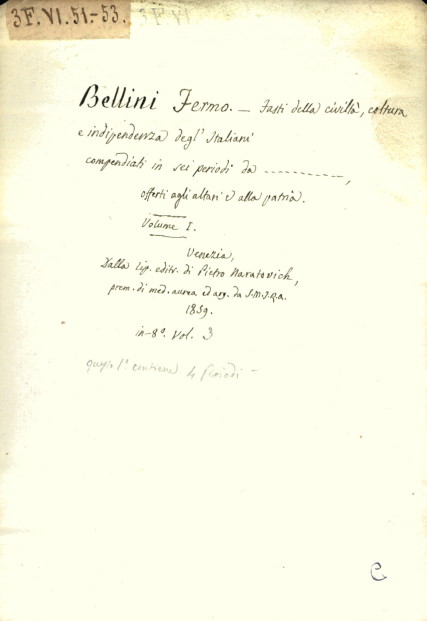 3F.VI.51.-53.
Bellini Fermo. — Fasti della civiltà, coltura
e indipendenza degl' Italiani
compendiati in sei periodi da -----------,
offerti agli altari e alla patria.
Volume I.
Venezia,
Dalla tip. edit. di Pietro Naratovich,
prem. di med. aurea ed arg. da S.M.I.R.A.
1859.
in-8º. Vol. 3
1º contiene 4 Periodi -
C